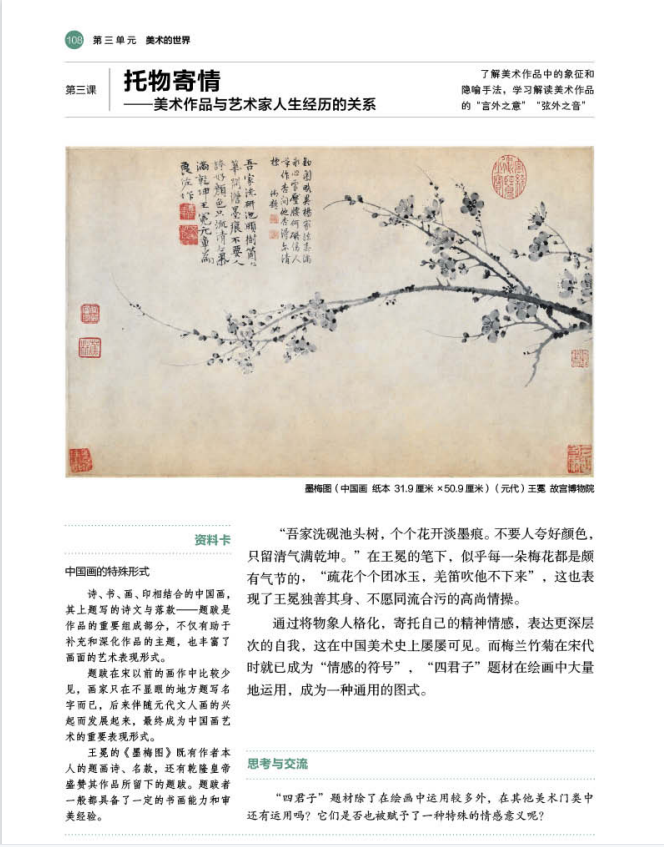 108 第三单元 美术的世界
第三课
托物寄情
——美术作品与艺术家人生经历的关系
了解美术作品中的象征和
隐喻手法，学习解读美术作品
的“言外之意”“弦外之音”
吾家洗研池頭樹箇箇
華開澹墨痕不要人
誇好顏色只流清氣
滿乾坤王冕元章為
良佐作
墨梅图（中国画 纸本 31.9厘米×50.9厘米）（元代）王冕 故宫博物院
资料卡
中国画的特殊形式
诗、书、画、印相结合的中国画，
其上题写的诗文与落款——题跋是
作品的重要组成部分，不仅有助于
补充和深化作品的主题，也丰富了
画面的艺术表现形式。
题跋在宋以前的画作中比较少
见，画家只在不显眼的地方题写名
字而已，后来伴随元代文人画的兴
起而发展起来，最终成为中国画艺
术的重要表现形式。
王冕的《墨梅图》既有作者本
人的题画诗、名款，还有乾隆皇帝
盛赞其作品所留下的题跋。题跋者
一般都具备了一定的书画能力和审
美经验。
“吾家洗砚池头树，个个花开淡墨痕。不要人夸好颜色，
只留清气满乾坤。”在王冕的笔下，似乎每一朵梅花都是颇
有气节的，“疏花个个团冰玉，羌笛吹他不下来”，这也表
现了王冕独善其身、不愿同流合污的高尚情操。
通过将物象人格化，寄托自己的精神情感，表达更深层
次的自我，这在中国美术史上屡屡可见。而梅兰竹菊在宋代
时就已成为“情感的符号”，“四君子”题材在绘画中大量
地运用，成为一种通用的图式。
思考与交流
“四君子”题材除了在绘画中运用较多外，在其他美术门类中
还有运用吗？它们是否也被赋予了一种特殊的情感意义呢？